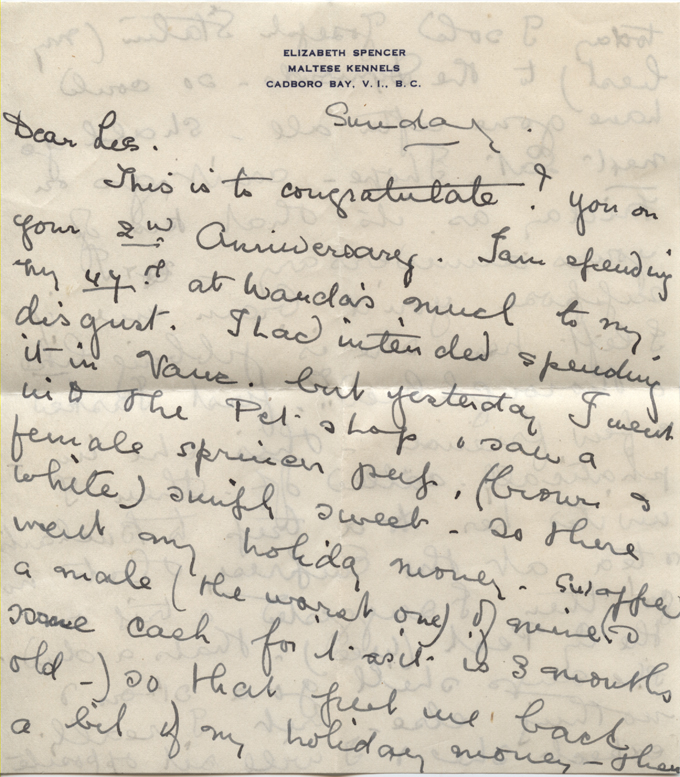 ELIZABETH SPENCER
MALTESE KENNELS
CADBORO BAY, V. I., B. C.
Sunday.
Dear Les.
This is to congratulate ? you on
your 2nd Anniversary. I am spending
my 44th at Wanda's much to my
disgust. I had intended spending
it in Vanc. but yesterday I went
into the Pet shop & saw a
female springer pup, (brown &
white) simply sweet - so there
went my holiday money. Swapped
a male (the worst one) of mine &
some cash for it as it is 3 months
old -) so that put me back
a bit of my holiday money - then